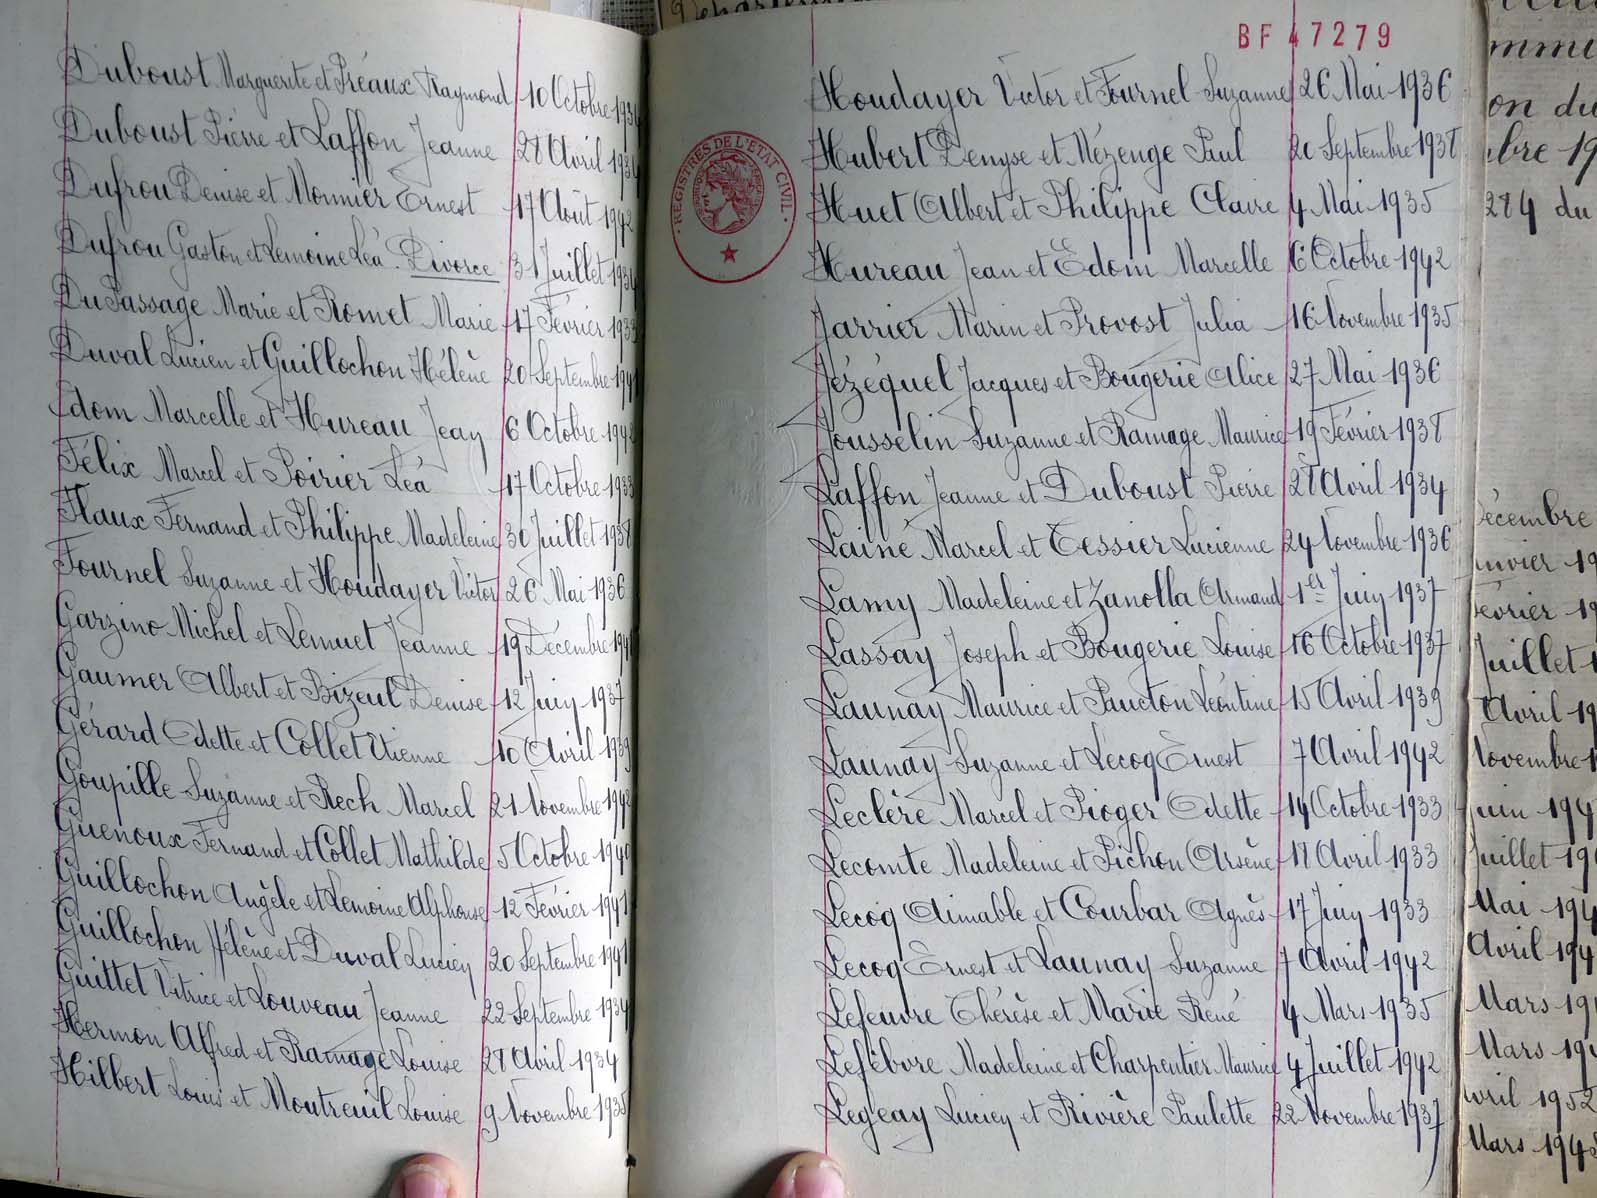 Duboust Marguerite et Préaux Raymond 10 Octobre 1934
Duboust Pierre et Laffon Jeanne 28 Avril 1934
Dufrou Denise et Monnier Ernest 17 Août 1942
Dufrou Gaston et Lemoine Léa. Divorce 31 Juillet 1934
DuPassage Marie et Romet Marie 17 Février 1933
Duval Lucien et Guillochon Hélène 20 Septembre 1941
Edom Marcelle et Hureau Jean 6 Octobre 1942
Félix Marcel et Poirier Léa 17 Octobre 1933
Flaux Fernand et Philippe Madeleine 30 Juillet 1938
Fournel Suzanne et Houdayer Victor 26 Mai 1936
Garzino Michel et Lemuet Jeanne 19 Décembre 1941
Gaumer Albert et Bizeul Denise 12 Juin 1937
Gérard Odette et Collet Etienne 10 Avril 1939
Goupille Suzanne et Rech Marcel 21 Novembre 1942
Guenoux Fernand et Collet Mathilde 5 Octobre 1940
Guillochon Angèle et Lemoine Alphonse 12 Février 1941
Guillochon Hélène et Duval Lucien 20 Septembre 1941
Guittet Vitrice et Louveau Jeanne 22 Septembre 1934
Hermon Alfred et Ramage Louise 28 Avril 1934
Hilbert Louis et Montreuil Louise 9 Novembre 1935
BF 47279
REGISTRES DE L'ETAT CIVIL
Houdayer Victor et Fournel Suzanne 26 Mai 1936
Hubert Denyse et Mézenge Paul 20 Septembre 1938
Huet Albert et Philippe Claire 4 Mai 1935
Hureau Jean et Edom Marcelle 6 Octobre 1942
Jarrier Marin et Provost Julia 16 Novembre 1935
Jézéquel Jacques et Bougerie Alice 27 Mai 1936
Jousselin Suzanne et Ramage Maurice 19 Février 1938
Laffon Jeanne et Duboust Pierre 28 Avril 1934
Lainé Marcel et Tessier Lucienne 24 Novembre 1936
Lamy Madeleine et Zanolla Armand 1er Juin 1937
Lassay Joseph et Bougerie Louise 16 Octobre 1937
Launay Maurice et Paucton Léontine 15 Avril 1939
Launay Suzanne et Lecoq Ernest 7 Avril 1942
Leclère Marcel et Pioger Odette 14 Octobre 1933
Lecomte Madeleine et Pichon Arsène 18 Avril 1933
Lecoq Aimable et Courbar Agnès 17 Juin 1933
Lecoq Ernest et Launay Suzanne 7 Avril 1942
Lefeuvre Thérèse et Marie René 4 Mars 1935
Lefebvre Madeleine et Charpentier Maurice 4 Juillet 1942
Legeay Lucien et Rivière Paulette 22 Novembre 1937
on du
bre 19
284 du
écembre
nvier 19
évrier 19
Juillet 1
Avril 19
Novembre 1
uin 194
juillet 19
Mai 194
Avril 194
Mars 19
Mars 19
vril 1952
Mars 1948